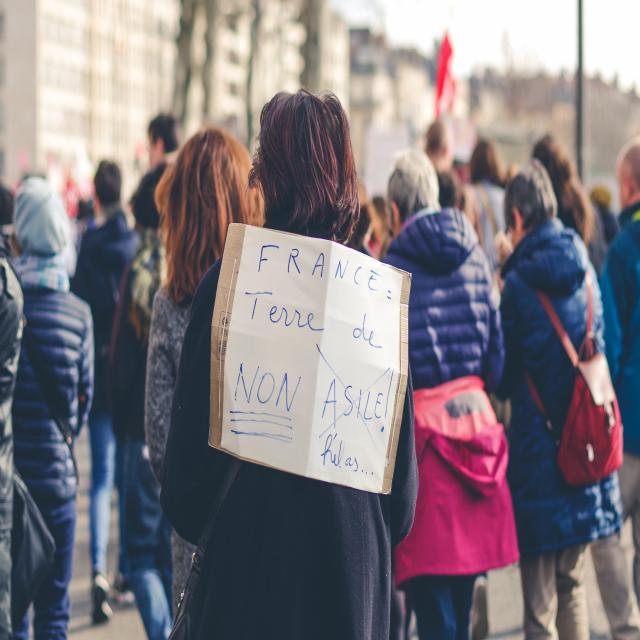 FRANCE:
Terre de
NON ASILE!
hélas...